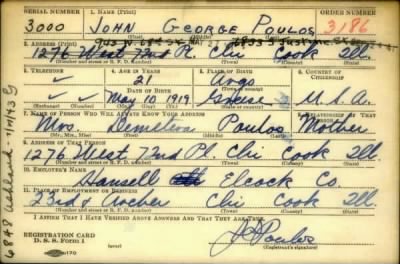 SERIAL NUMBER 1. NAME (Print) ORDER NUMBER
3000 JOHN GEORGE POULOS 3186
(First) (Middle) (Last)
2. ADDRESS (Print)
1276 West 72nd Pl. Chi Cook Ill.
(Number and street or R. F. D. number) (Town) (County) (State)
3. TELEPHONE 4. AGE IN YEARS 5. PLACE OF BIRTH 6. COUNTRY OF CITIZENSHIP
21 Argo
DATE OF BIRTH
May 10 1919 Greece U.S.A.
(Exchange) (Number) (Mo.) (Day) (Yr.) (State or country)
7. NAME OF PERSON WHO WILL ALWAYS KNOW YOUR ADDRESS 8. RELATIONSHIP OF THAT PERSON
Mrs Poulos Mother
(Mr., Mrs., Miss) (First) (Middle) (Last)
9. ADDRESS OF THAT PERSON
1276 West 72nd Pl Chi Cook Ill.
(Number and street or R. F. D. number) (Town) (County) (State)
10. EMPLOYER'S NAME
Hansell Elcock Co.
11. PLACE OF EMPLOYMENT OR BUSINESS
23rd & Archer Chi Cook Ill.
(Number and street or R. F. D. number) (Town) (County) (State)
I AFFIRM THAT I HAVE VERIFIED ABOVE ANSWERS AND THAT THEY ARE TRUE.
REGISTRATION CARD
D. S. S. Form 1
J G Poulos
(Registrant's signature)
6848 Ashland